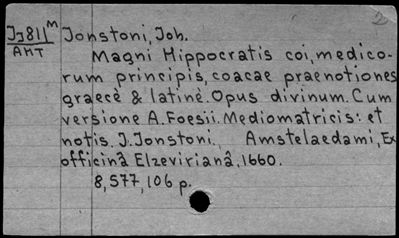 IJ811ᴹ Jonstoni, Joh.
АНТ
Magni Hippocratis coi, medico-
rum principis, coacae praenotiones
graecè & latinè. Opus divinum. Cum
versione A. Foesii. Mediomatricis: et
notis J. Jonstoni. Amstelaedami, Ex
officinâ Elzevirianâ, 1660.
8,577,106 p.